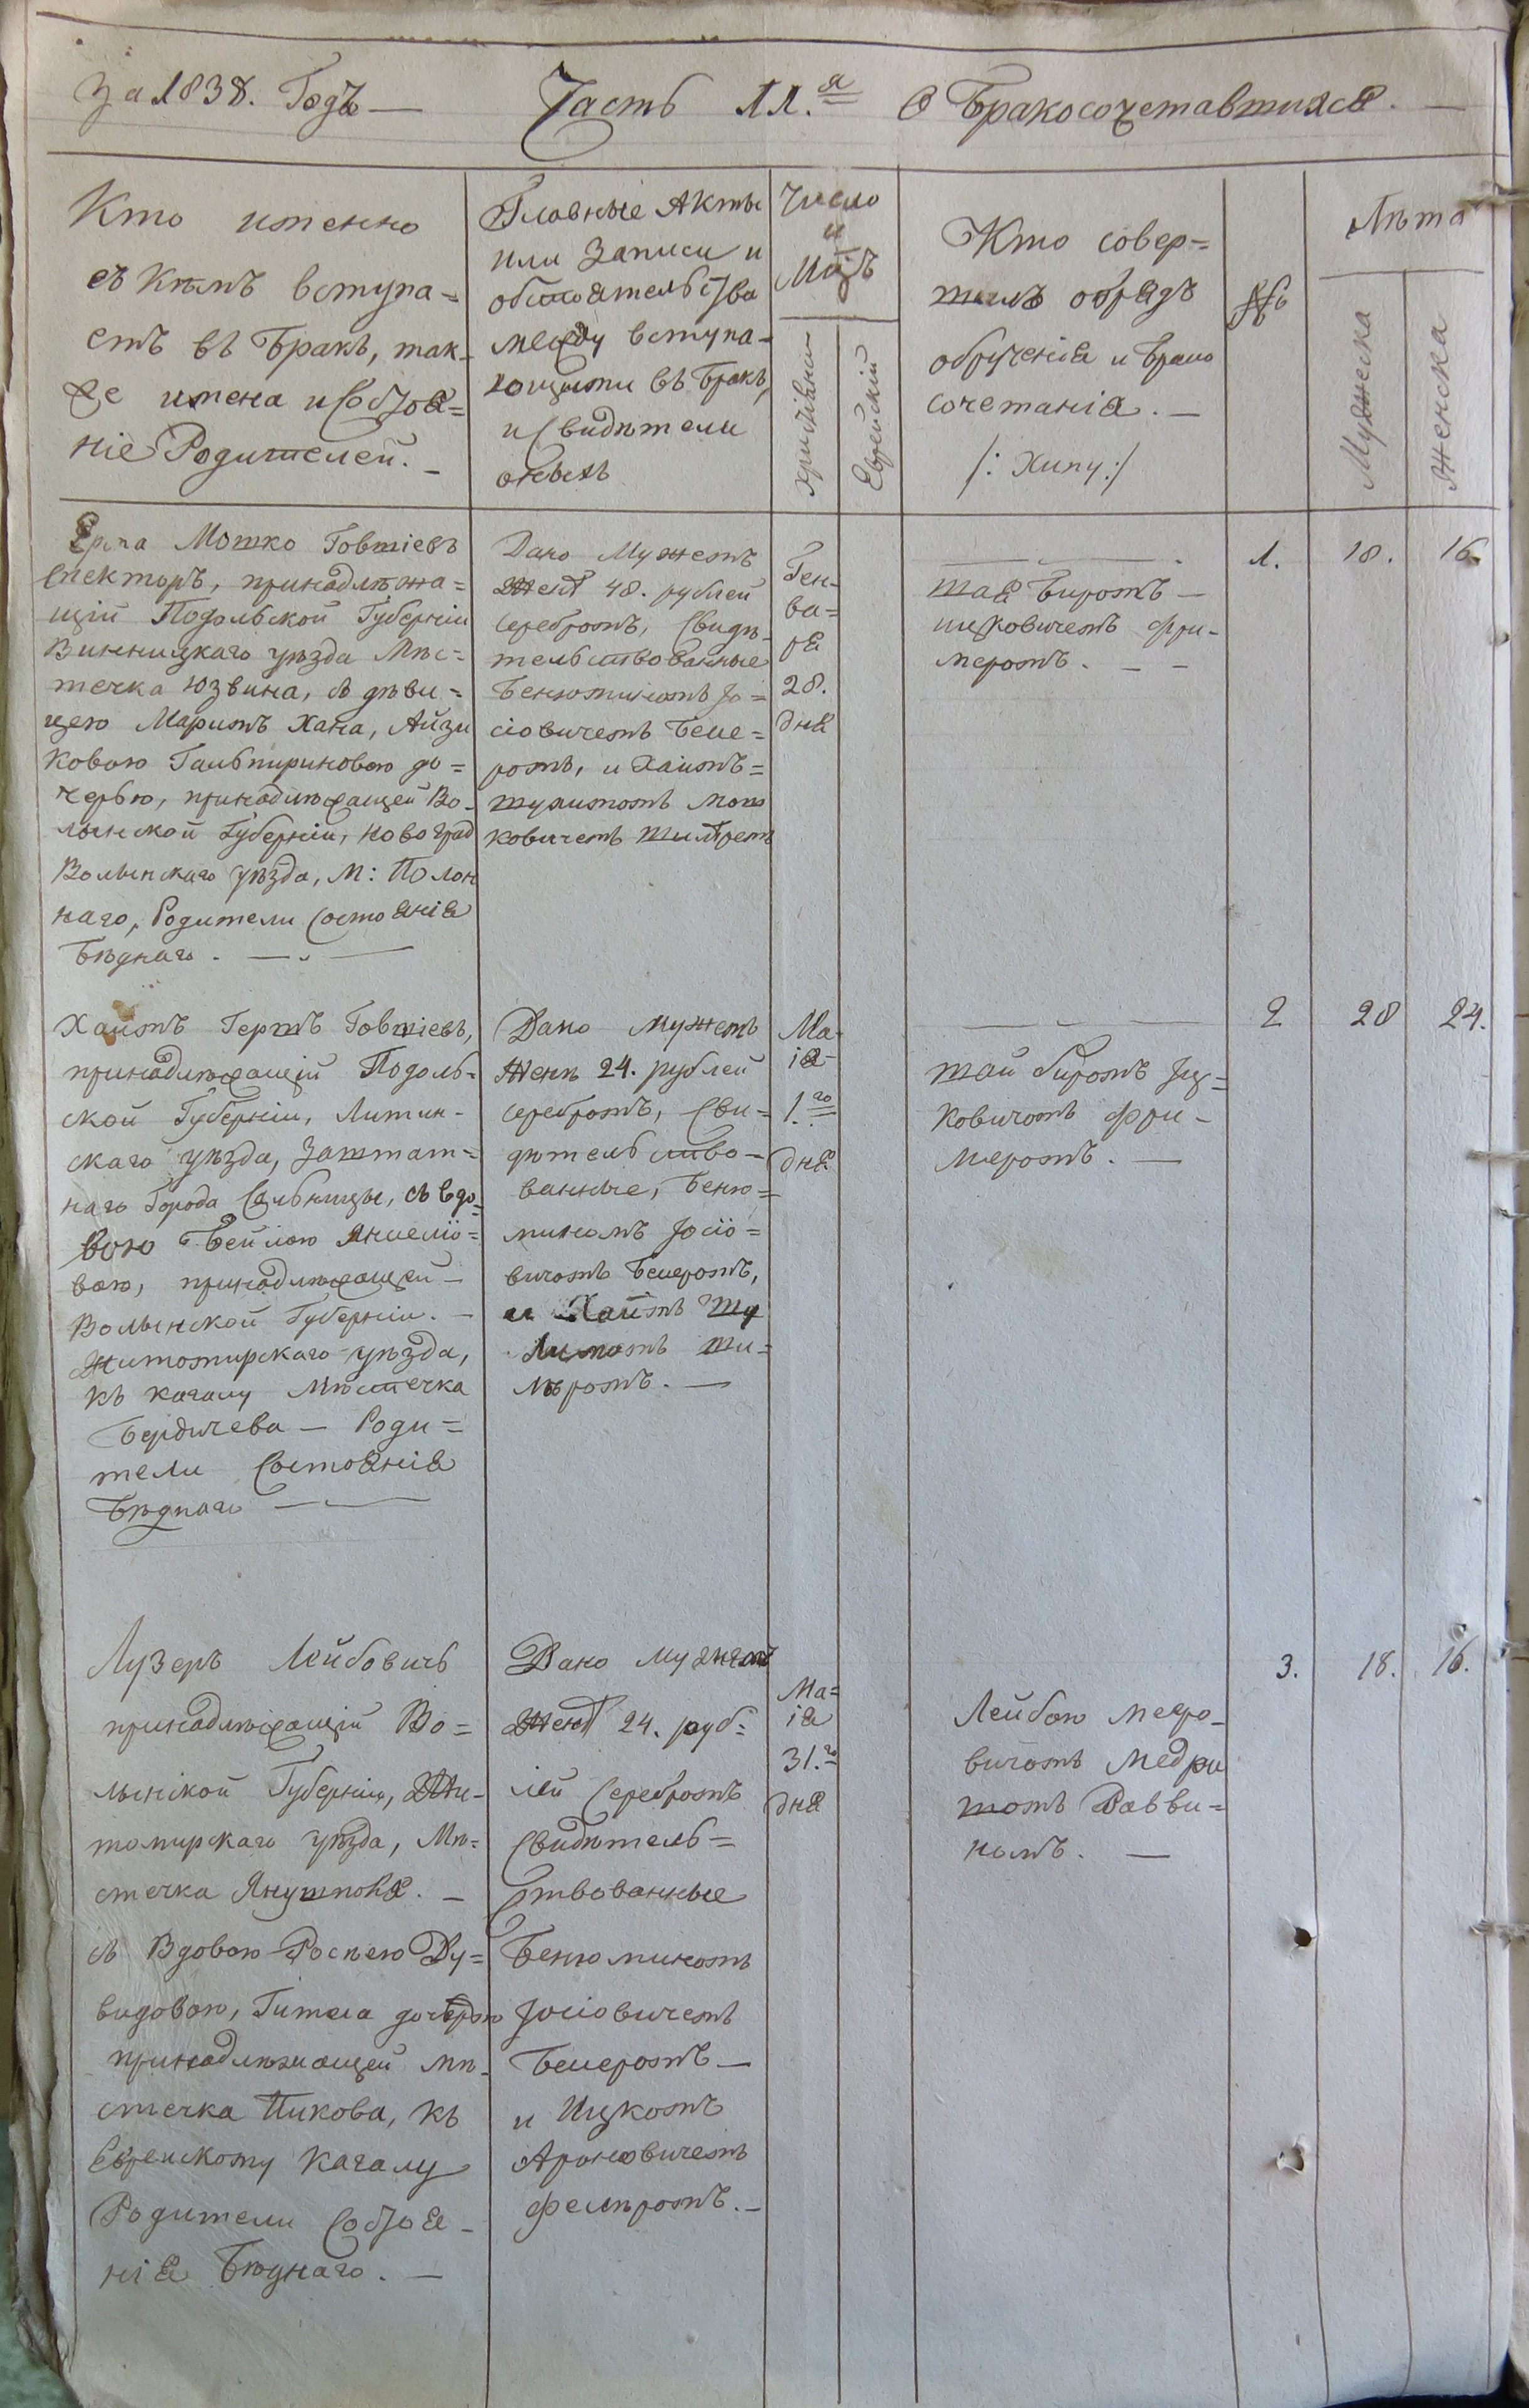 За 1838. Годъ — Часть II.ая О Бракосочетавшихся. —
Кто именно
съ Кѣмъ вступа=
етъ въ Бракъ, так-
же имена и Состоя=
ніе Родителей. —
Главные Акты
или Записи и
обстоятельства
между вступа-
ющими въ Бракъ,
и Свидѣтели
оныхъ
Число
и
Мцъ
христіянскій
Еврейскій
Кто совер=
шилъ обрядъ
обрученія и брако
сочетанія. —
/: Хипу :/
№
Лѣта
Мужеска
Женска
Мошко Говшіевъ
Спекторъ, принадлѣжа=
щій Подольской Губерніи
Винницкаго уѣзда Мѣс=
течка Юзвина, съ дѣви=
цею Маріямъ Хана, Айзи
ковою Гальпириновою до=
черью, принадлѣжащей Во-
лынской Губерніи, Новоград
Волынскаго уѣзда, М: Полон
наго, Родители Состоянія
Бѣднаго. —
Дано Мужемъ
Женѣ 48. рублей
серебромъ, Свидѣ-
тельствованные
Бенюминомъ Іо=
сіовичемъ Белe=
ромъ, и Хаимъ=
шулимомъ Мош
ковичемъ
Ген-
ва=
ря
28.
дня
шая Биромъ —
ицковичемъ Фри-
меромъ. — —
1.
18.
16
Хаимъ Гершъ Говшіевъ,
принадлѣжащій Подоль-
ской Губерніи, Литин-
скаго уѣзда, Заштат=
наго Города Сальницы, съ вдо=
вою Бейлою Аншелiо=
вою, принадлѣжащей —
Волынской Губерніи. —
Житомирскаго уѣзда,
къ кагалу Мѣстечка
Бердичева — Роди=
тели Состоянія
Бѣднаго —
Дано мужемъ
Женѣ 24. рублей
серебромъ, Сви=
дѣтельство-
ванные, Беню=
миномъ Іосіо=
вичомъ Белеромъ,
и Хаимъ Шу
лимомъ Ши=
лѣромъ. —
Ма-
ія
1.го
дня
шай Биромъ Иц=
ковичомъ Фри-
меромъ. —
2
20
24.
Лузеръ Лейбовичъ
принадлѣжащій Во=
лынской Губерніи, Жи-
томирскаго уѣзда, Мѣ=
стечка Янушполя. —
съ Вдовою Росяею Ду=
видовою, Гитела дочерью
принадлѣжащей мѣ-
стечка Пикова, къ
Еврейскому Кагалу
Родители Состоя-
нія Бѣднаго. —
Дано Мужемъ
Женѣ 24. руб=
лей Серебромъ
Свидѣтель=
ствованные
Бенюминомъ
Іосіовичемъ
Белеромъ —
и Ицкомъ
Ароновичемъ
Фелѣромъ. —
Ма=
ія
31.го
дня
Лейбою Меэро-
вичомъ Медри
шомъ Равви=
номъ. —
3.
18.
16.